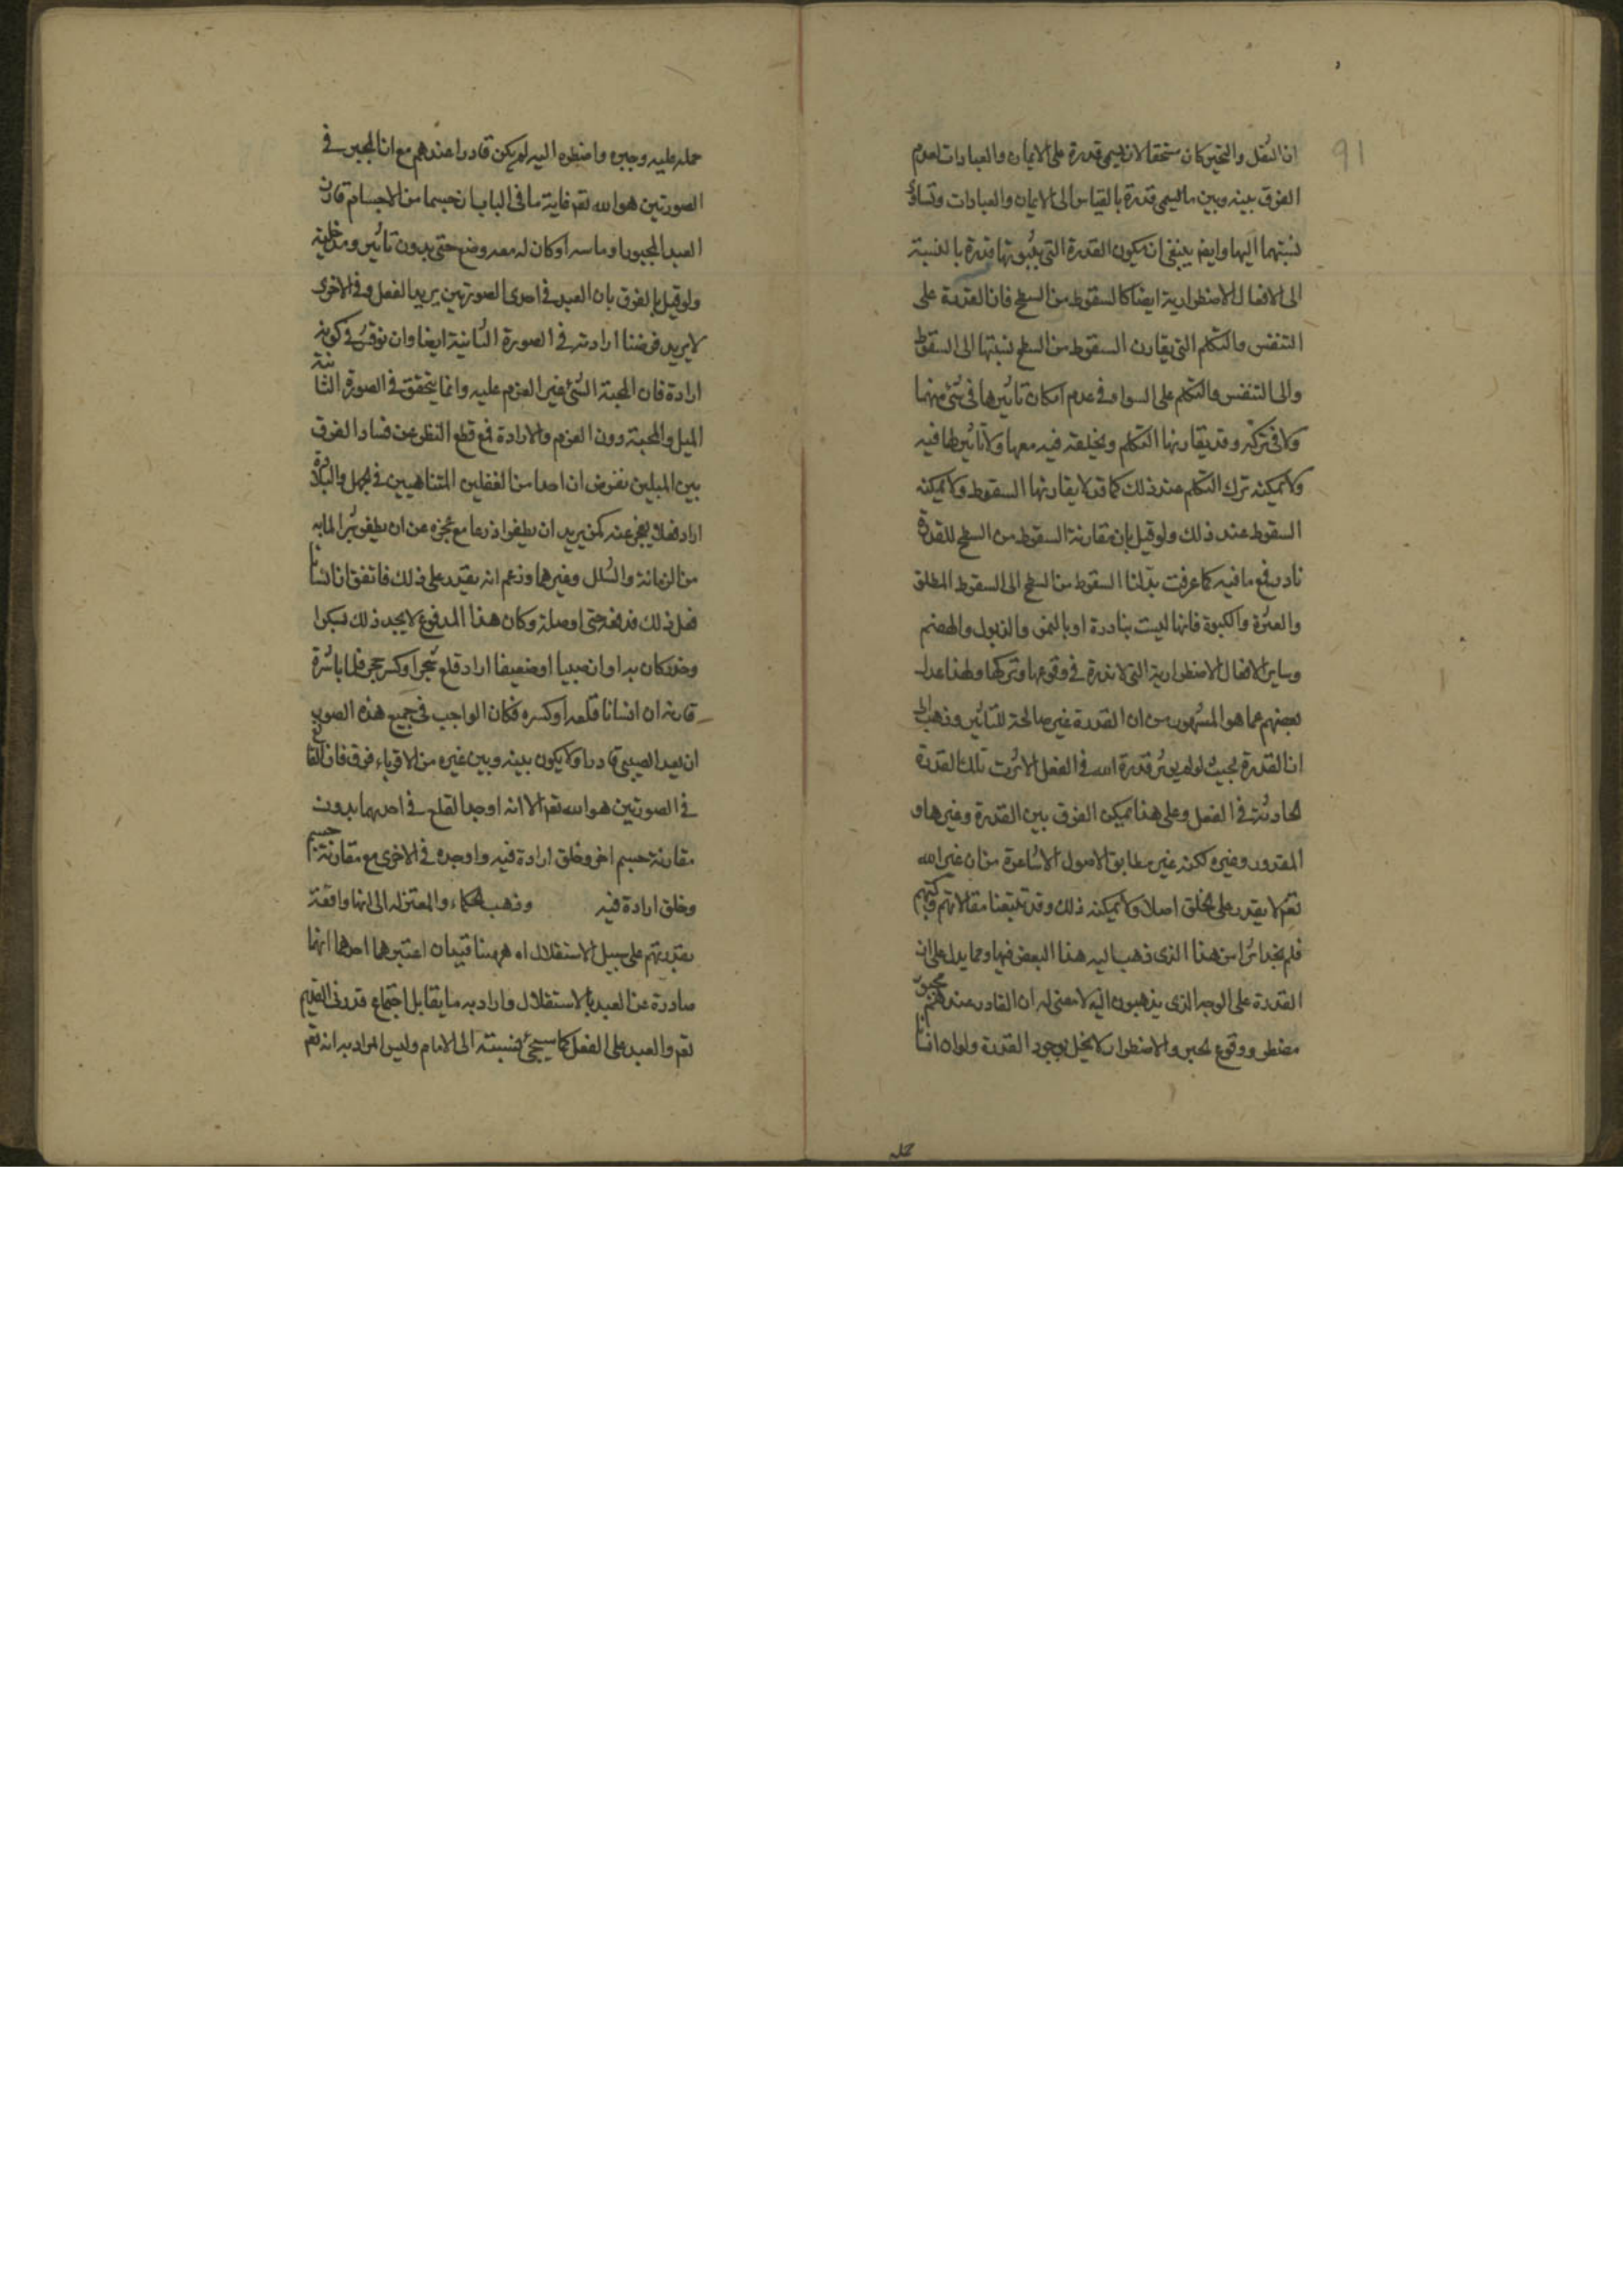 91
ان الثقل والتحيز كان مستحقا لان يسمى قدرة على الايمان والعبادات لعدم
الفرق بينه وبين ما يسمى قدرة بالقياس الى الايمان والعبادات وتساوى
نسبتهما اليها وايضا ينبغى ان يكون القدرة التى يثبوتها قدرة بالنسبة
الى الافعال الاضطرارية ايضا كالسقوط من السطح فان القدرة على
التنفس والتكلم التى يقارن السقوط من السطح نسبتها الى السقوط
والى التنفس والتكلم على السواء فى عدم امكان تاثيرها فى شئ منهما
ولا فى تركه وقد يقارنها التكلم ويخلقه فيه معها ولا تاثير لها فيه
ولا يمكنه ترك التكلم عند ذلك كما قد لا يقارنها السقوط ولا يمكنه
السقوط عند ذلك ولو قيل بان مقارنة السقوط من السطح للقدرة
نادر فمع ما فيه كما عرفت بدلنا السقوط من السطح الى السقوط المطلق
والعثرة والكبوة فانها ليست بنادرة او بالنمو والذبول والهضم
وساير الافعال الاضطرارية التى لا ندرة فى وقوعها وتركها ولهذا عدل
بعضهم عما هو المشهور من ان القدرة غير صالحة للتاثير وذهب الى
ان القدرة بحيث لو لم يوثر قدرة الله فى الفعل لاثرت تلك القدرة
الحادثة فى الفعل وعلى هذا يمكن الفرق بين القدرة وغيرها و
المقدور وغيره لكنه غير مطابق لاصول الاشاعرة من ان غير الله
تعم لا يقدر على الخلق اصلا ولا يمكنه ذلك وقد تتبعنا مقالاتهم وكتبهم
فلم نجد اثرا من هذا الذى ذهب اليه هذا البعض فيها ومما يدل على ان
القدرة على الوجه الذى يذهبون اليه لا معنى له ان القادر عندهم مجبور
مضطر ووقوع الجبر والاضطرار لا يخل بوجود القدرة ولو ان انسانا
حمله
حمله عليه وجبره واضطره اليه لم يكن قادرا عندهم مع ان المجبر فى
الصورتين هو الله تعم غاية ما فى الباب ان جسما من الاجسام قارن
العبد المجبور او ماسه او كان له معه وضع حتى بدون تاثير ومدخلية
ولو قيل بالفرق بان العبد فى احدى الصورتين يريد الفعل وفى الاخرى
لا يريد فرضنا ارادته فى الصورة الثانية ايضا وان نوقش فى كونه
ارادة فان المحبة الشئ غير العزم عليه وانما يتحقق فى الصورة الثانية
الميل والمحبة دون العزم والارادة فمع قطع النظر عن فساد الفرق
بين الميلين نفرض ان احدا من الغفلين المتناهيين فى الجهل والبلادة
اراد فعلا يعجز عنه كمن يريد ان يطفر اذرعا مع عجزه عن ان يطفر شبرا لما به
من الزمانة والشلل وغيرها وزعم انه يقدر على ذلك فاتفق ان انسانا
فعل ذلك فدفعه حتى اوصله وكان هذا المدفوع لا يجد ذلك لسكر او
وخدر كان به او ان صبيا او ضعيفا اراد قلع شجر او كسر حجر فلما باشره
قارنه ان انسانا قلعه او كسره فكان الواجب فى جميع هذه الصور
ان يعد الصبى قادرا ولا يكون بينه وبين غيره من الاقوياء فرق فان القالع
فى الصورتين هو الله تعم الا انه اوجد القلع فى احدهما بدون
مقارنة جسم اخر وخلق ارادة فيه واوجده فى الاخرى مع مقارنة جسم
وخلق ارادة فيه وذهب الحكماء والمعتزلة الى انها واقعة
بقدرتهم على سبيل الاستقلال اه هيهنا قيدان اعتبرهما احدهما انها
صادرة عن العبد بالاستقلال واراد به ما يقابل اجتماع قدرتى القديم
تعم والعبد على الفعل كما سيجئ نسبته الى الامام وليس المراد به انه تعم